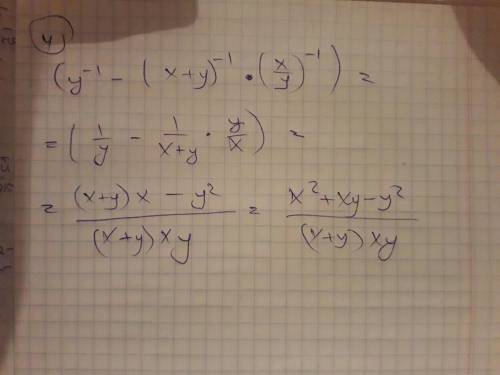 4)
(y⁻¹ - (x+y)⁻¹ · (x/y)⁻¹) =
= (1/y - 1/(x+y) · y/x) =
= ((x+y)x - y²)/((x+y)xy) = (x²+xy-y²)/((x+y)xy)